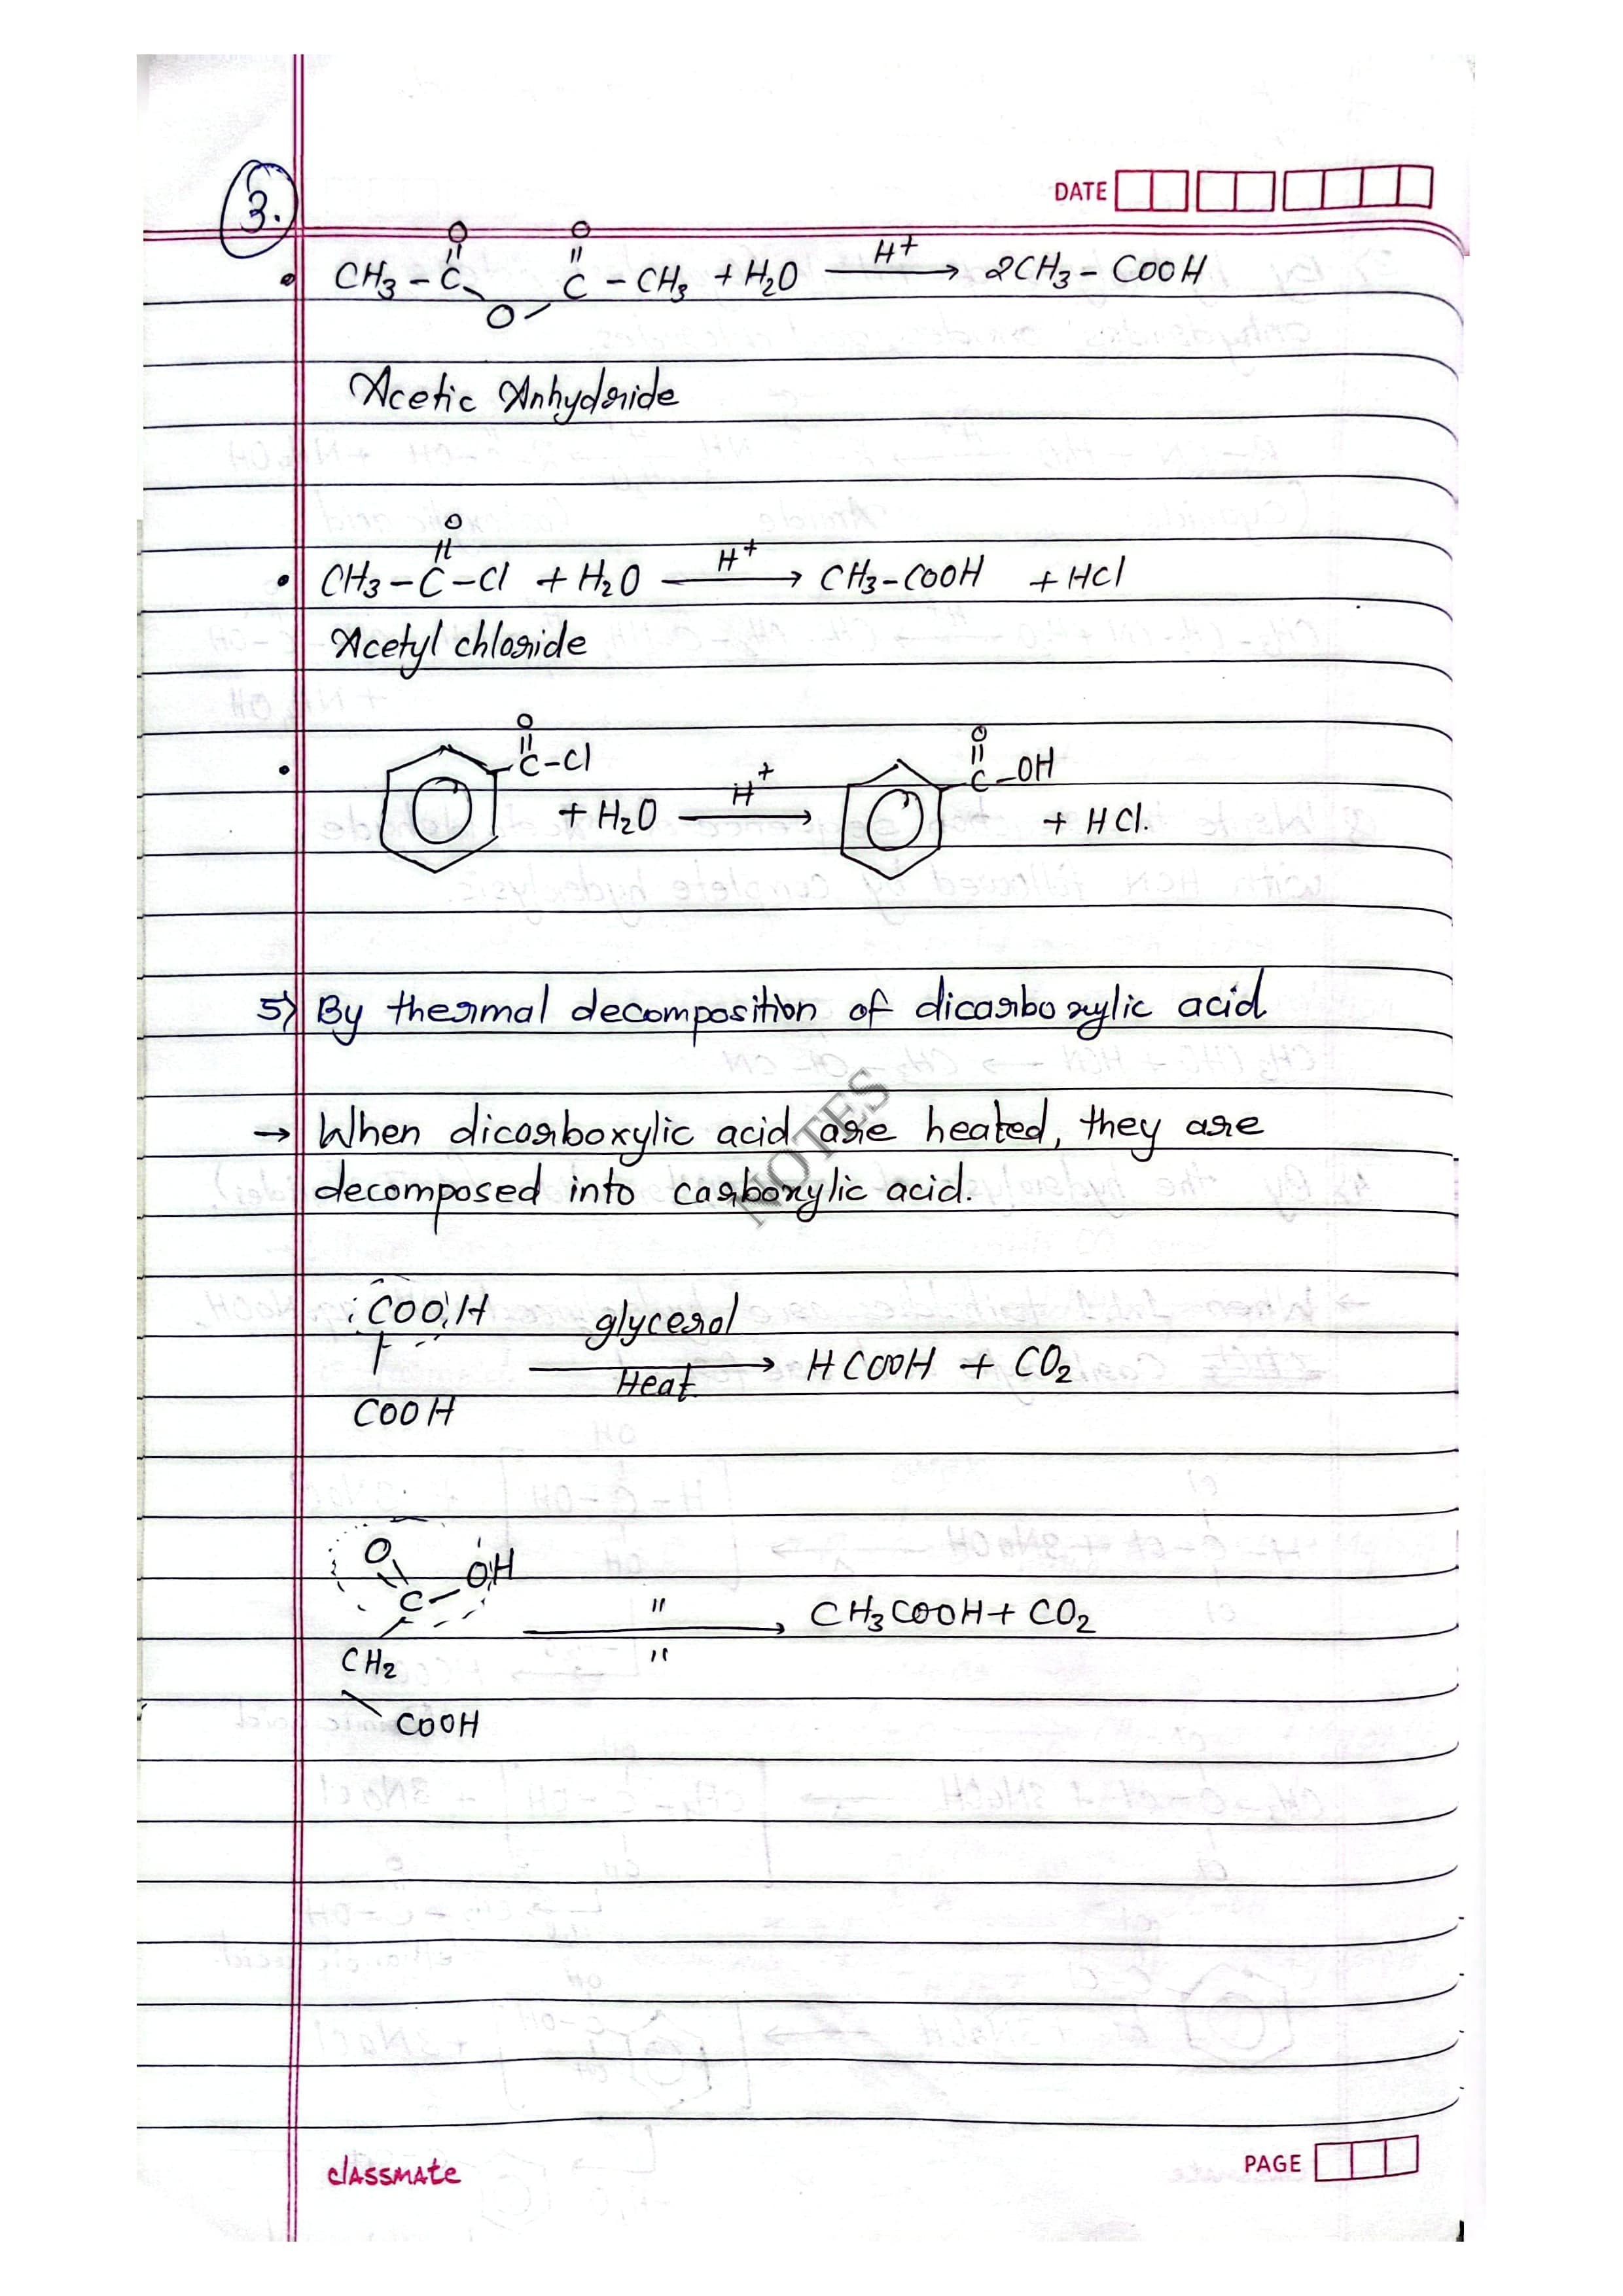 3.
DATE
O O
CH₃ - C C - CH₃ + H₂O H⁺ → 2CH₃ - COOH
O
Acetic Anhydride
O
• CH₃ - C - Cl + H₂O H⁺ → CH₃ - COOH + HCl
Acetyl chloride
O O
• C-Cl + H₂O H⁺ → C-OH + HCl.
5) By thermal decomposition of dicarboxylic acid
→ When dicarboxylic acid are heated, they are
decomposed into carboxylic acid.
NOTES
COOH glycerol
→ HCOOH + CO₂
Heat
COOH
O
C - OH
" → CH₃COOH + CO₂
"
CH₂
COOH
classmate
PAGE